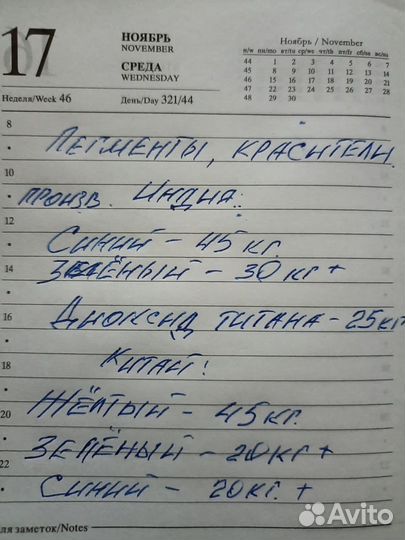 17
НОЯБРЬ
NOVEMBER
СРЕДА
WEDNESDAY
Неделя/Week 46
День/Day 321/44
Ноябрь / November
н/w пн/mo вт/tu ср/we чт/th пт/fr сб/sa вс/su
44 1 2 3 4 5 6 7
45 8 9 10 11 12 13 14
46 15 16 17 18 19 20 21
47 22 23 24 25 26 27 28
48 29 30
8
Пегменты, красители.
10
произв. Индия:
12
Синий - 45 кг.
14 Зелёный - 30 кг +
16 Диоксид титана - 25 кг
18 Китай:
20 Жёлтый - 45 кг.
22 Зелёный - 20 кг +
Синий - 20 кг. +
ля заметок/Notes
Avito